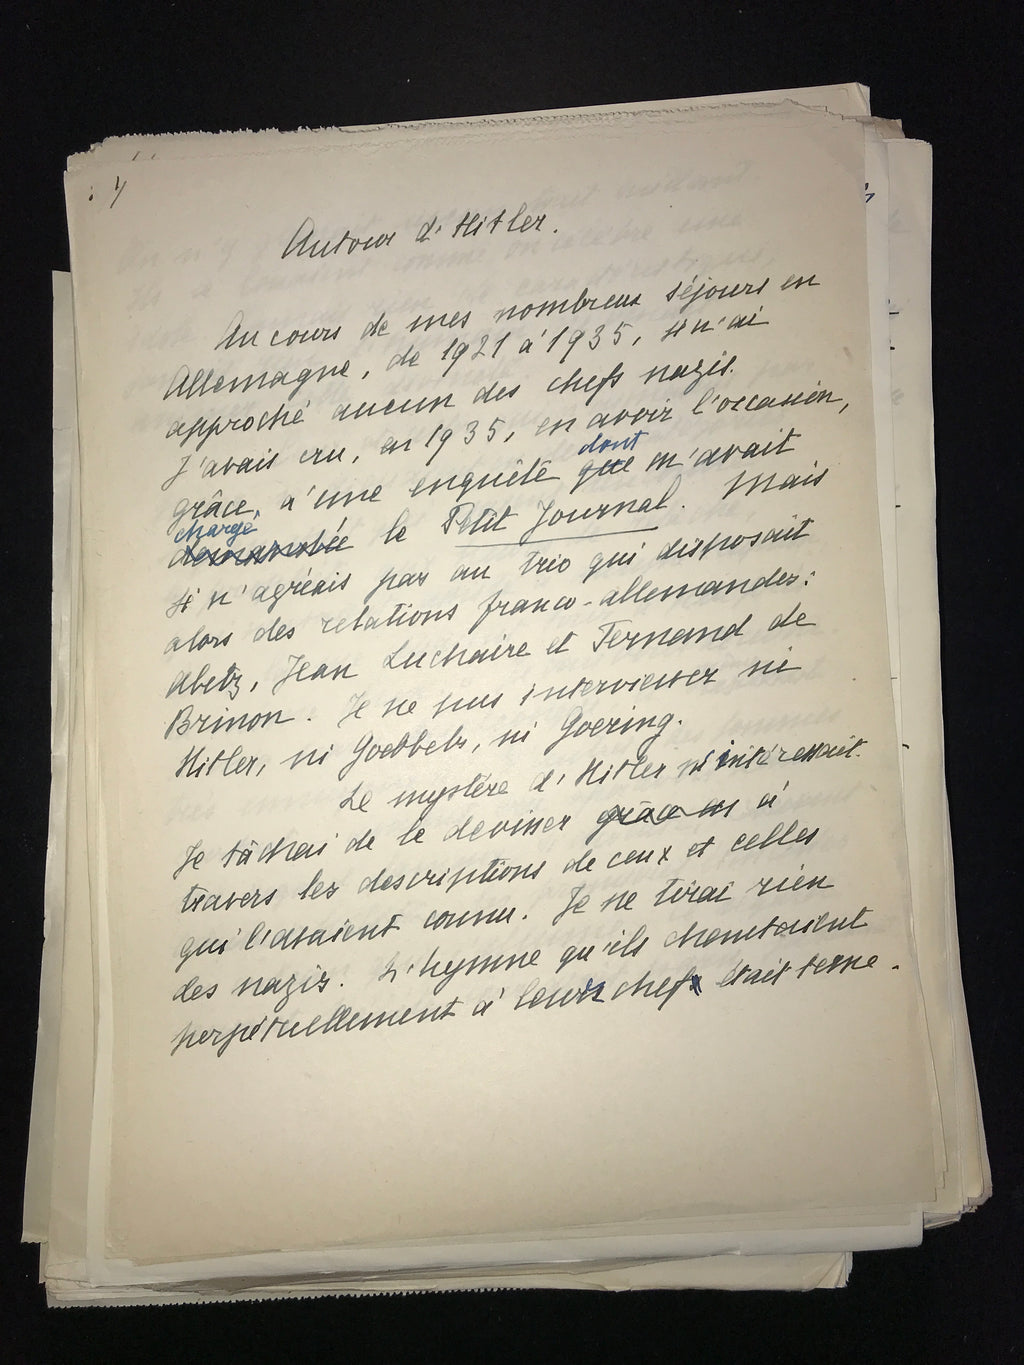 Autour d'Hitler.
Au cours de mes nombreux séjours en
Allemagne, de 1921 à 1935, je n'ai
approché aucun des chefs nazis.
J'avais cru, en 1935, en avoir l'occasion,
dont
grâce, à une enquête que m'avait
chargé
demandée le Petit Journal. Mais
je n'agréais pas au trio qui disposait
alors des relations franco-allemandes:
Abetz, Jean Luchaire et Fernand de
Brinon. Je ne pus interviewer ni
Hitler, ni Goebbels, ni Goering.
Le mystère d'Hitler m'intéressait.
Je tâchai de le deviner grâce à
travers les descriptions de ceux et celles
qui l'avaient connu. Je ne tirai rien
des nazis. L'hymne qu'ils chantaient
perpétuellement à leur chef était terne.